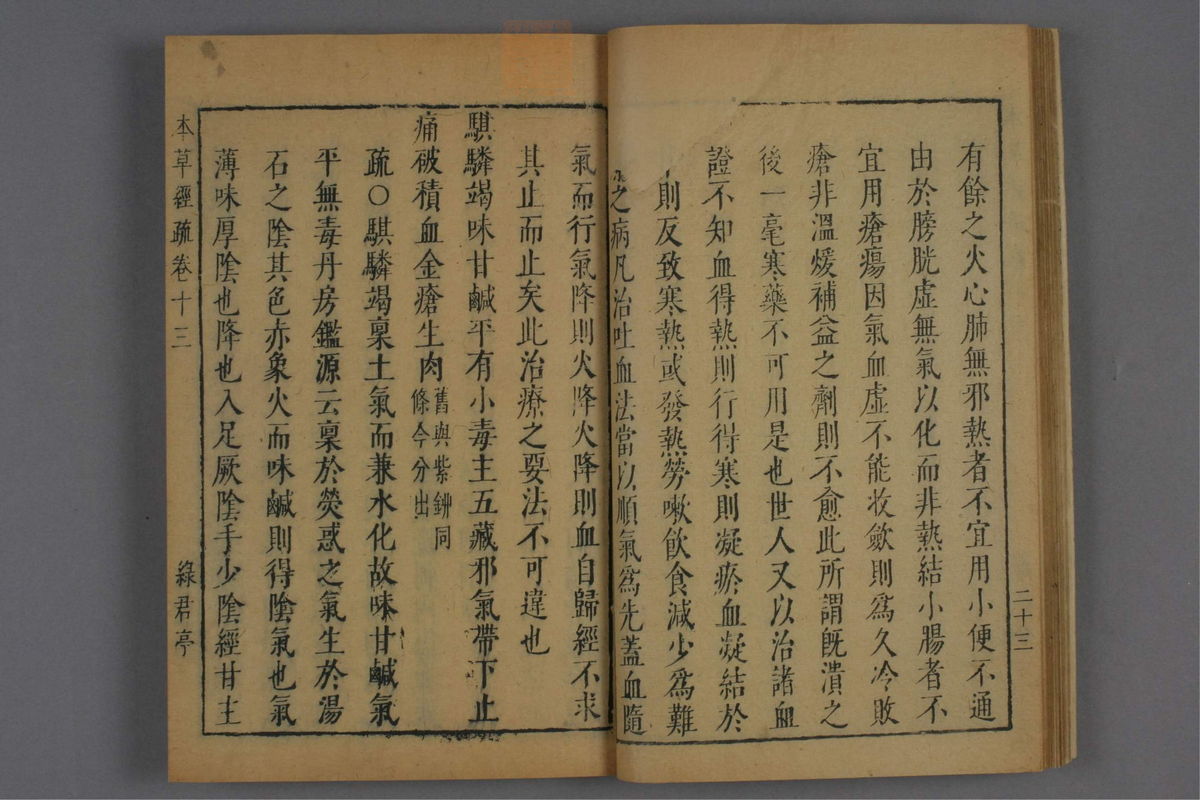 有餘之火心肺無邪熱者不宜用小便不通
由於膀胱虛無氣以化而非熱結小腸者不
宜用瘡瘍因氣血虛不能收斂則爲久冷敗
瘡非溫煖補益之劑則不愈此所謂旣潰之
後一毫寒藥不可用是也世人又以治諸血
證不知血得熱則行得寒則凝瘀血凝結於
則反致寒熱或發熱勞嗽飲食減少爲難
之病凡治吐血法當以順氣爲先蓋血隨
二十三
氣而行氣降則火降火降則血自歸經不求
其止而止矣此治療之要法不可違也
騏驎竭味甘鹹平有小毒主五藏邪氣帶下止
痛破積血金瘡生肉舊與紫鉚同條今分出
疏○騏驎竭稟土氣而兼水化故味甘鹹氣
平無毒丹房鑑源云稟於熒惑之氣生於湯
石之陰其色赤象火而味鹹則得陰氣也氣
薄味厚陰也降也入足厥陰手少陰經甘主
本草經疏卷十三
綠君亭